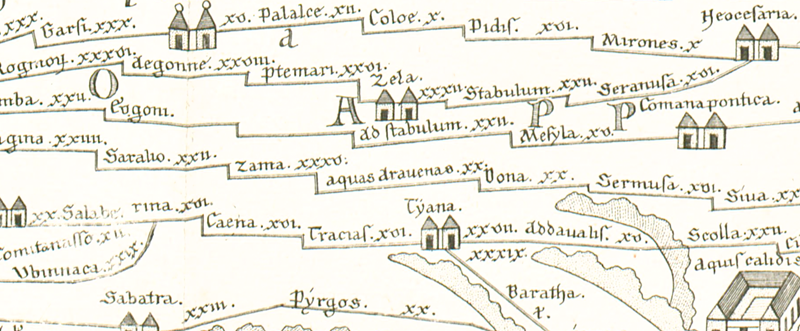 xxx. Garsi. xxx. xv. Palalce. xii. Coloe. x. Pidis. xvi. Mirones. x Neocesaria.
Rogmoṛ. xxxvi. aegonne. xxviii. Ptemari. xxvi. Zela. xxxii. Stabulum. xxii. Seranusa. xvi.
d
O A P P
mba. xxii. Eugoni. ad stabulum. xxii. Mesyla. xv. Comana pontica.
agina. xxiiii. Saralio. xxii. Zama. xxxv. aquas aravenas. xx. Dona. xx. Sermusa. xvi. Siva. xx
xx. Salabe rina. xvi. Caena. xvi. Tracias. xvi. Tyana. xxvii. Addavalis. xv. Scolla. xxii.
Comitanasso. xii. xxxix. aquis calidis
Ubinnaca. xxix.
Sabatra. xxiii. Pyrgos. xx. Baratha.
x.